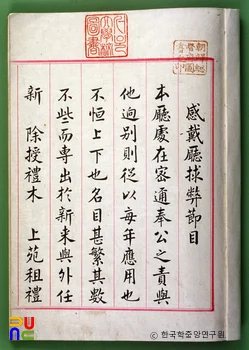 感戴廳捄弊節目
本廳處在密通奉公之責與
他逈別則從以每年應用也
不恒上下也名目甚繁其數
不些而專出於新来與外任
新 除授禮木 上苑租禮
© 한국학중앙연구원